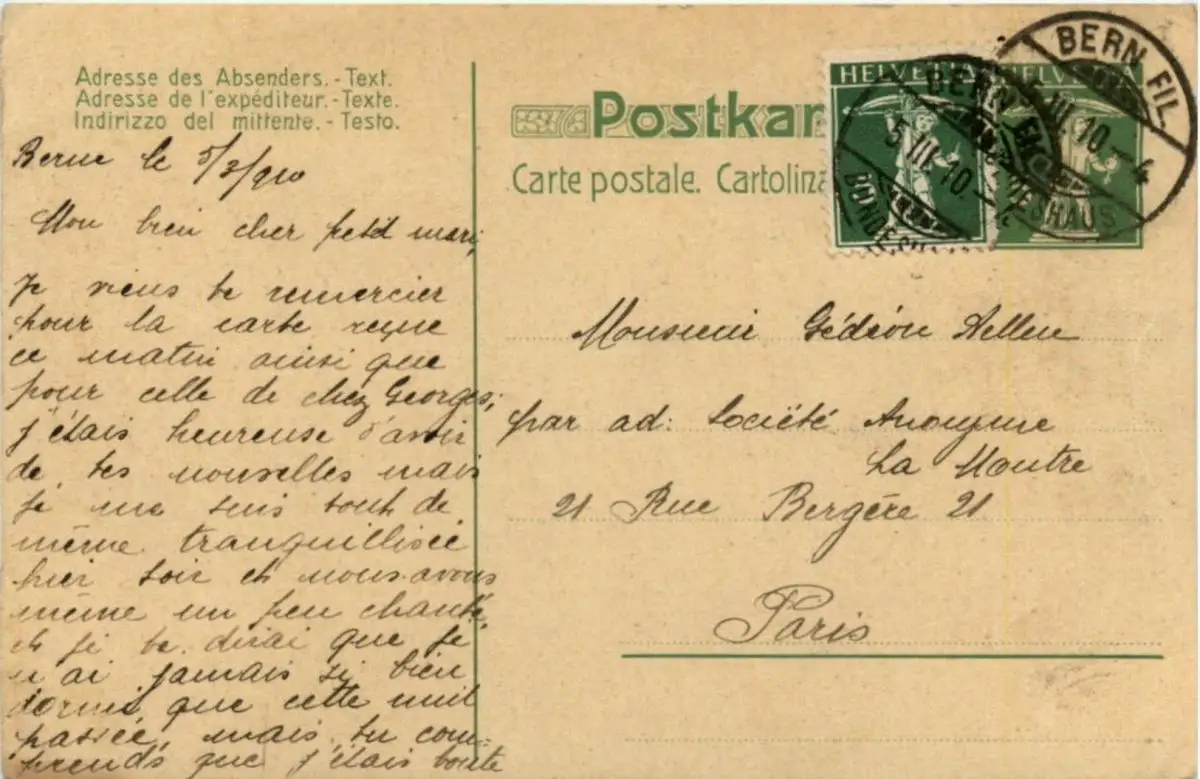 Adresse des Absenders.-Text.
Adresse de l'expéditeur.-Texte.
Indirizzo del mittente.-Testo.
Postkar
Carte postale. Cartolina
HELVETIA
HELVETIA
BERN
5 III 10
BUNDESHAUS
BERN FIL.
III 10-4
BUNDESHAUS
Berne le 5/3/910
Mon bien cher petit mari,
Je viens te remercier
pour la carte reçue
ce matin ainsi que
pour celle de chez Georges;
j'étais heureuse d'avoir
de tes nouvelles mais
je me suis tout de
même tranquillisée
hier soir et nous avons
même un peu chanté
et je te dirai que je
n'ai jamais si bien
dormi que cette nuit
passée, mais tu com-
prends que j'étais
Monsieur Gédéon Aellen
par ad: Société Anonyme
La Montre
21 Rue Bergère 21
Paris